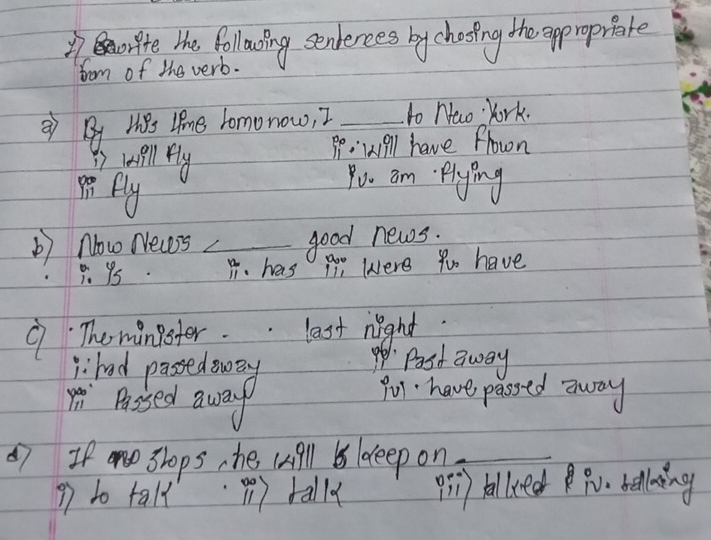 1) Rewrite the following sentences by chosing the appropriate
form of the verb.
a) By this time tomorrow, I ____ to New York.
i) will fly ii. will have flown
iii fly iv. am flying
b) Now News ____ good news.
i. is. ii. has iii were iv. have
c) The minister - . last night.
i. had passed away ii. Past away
iii Passed away iv). have passed away
d) If stops, he will keep on ____
i) to talk ii) talk iii) talked iv. talking